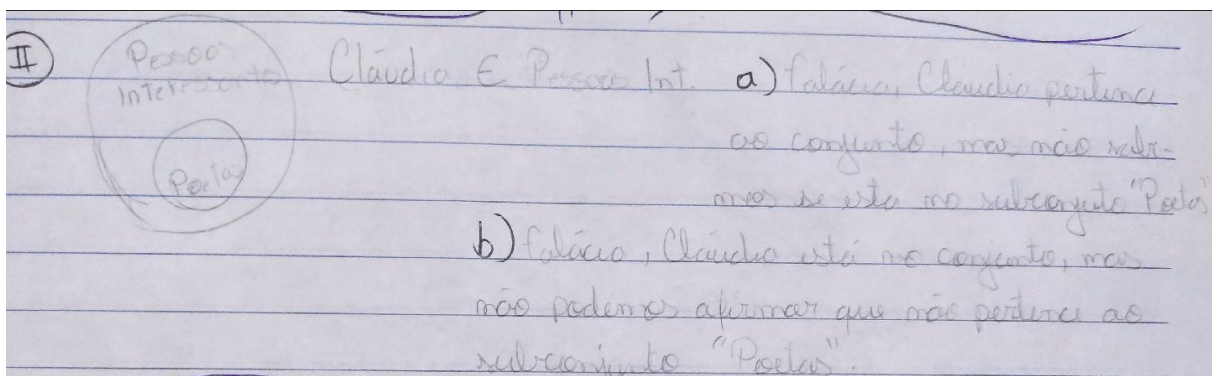 II
Pessoas
Interessante
Poetas
Cláudio ∈ Pessoas Int. a) falácia, Claudio pertence
ao conjunto, mas não sabe-
mos se esta no subconjuto "Poetas"
b) falácia, Cláudio está no conjunto, mas
não podemos afirmar que não pertence ao
subconjunto "Poetas".